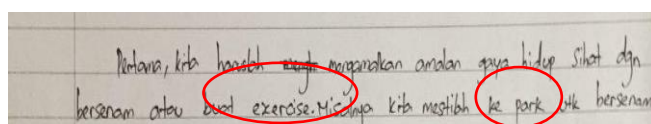 Pertama, kita haruslah mengamalkan amalan gaya hidup sihat dgn
bersenam atau buat exercise. Misalnya kita mestilah ke park utk bersenam